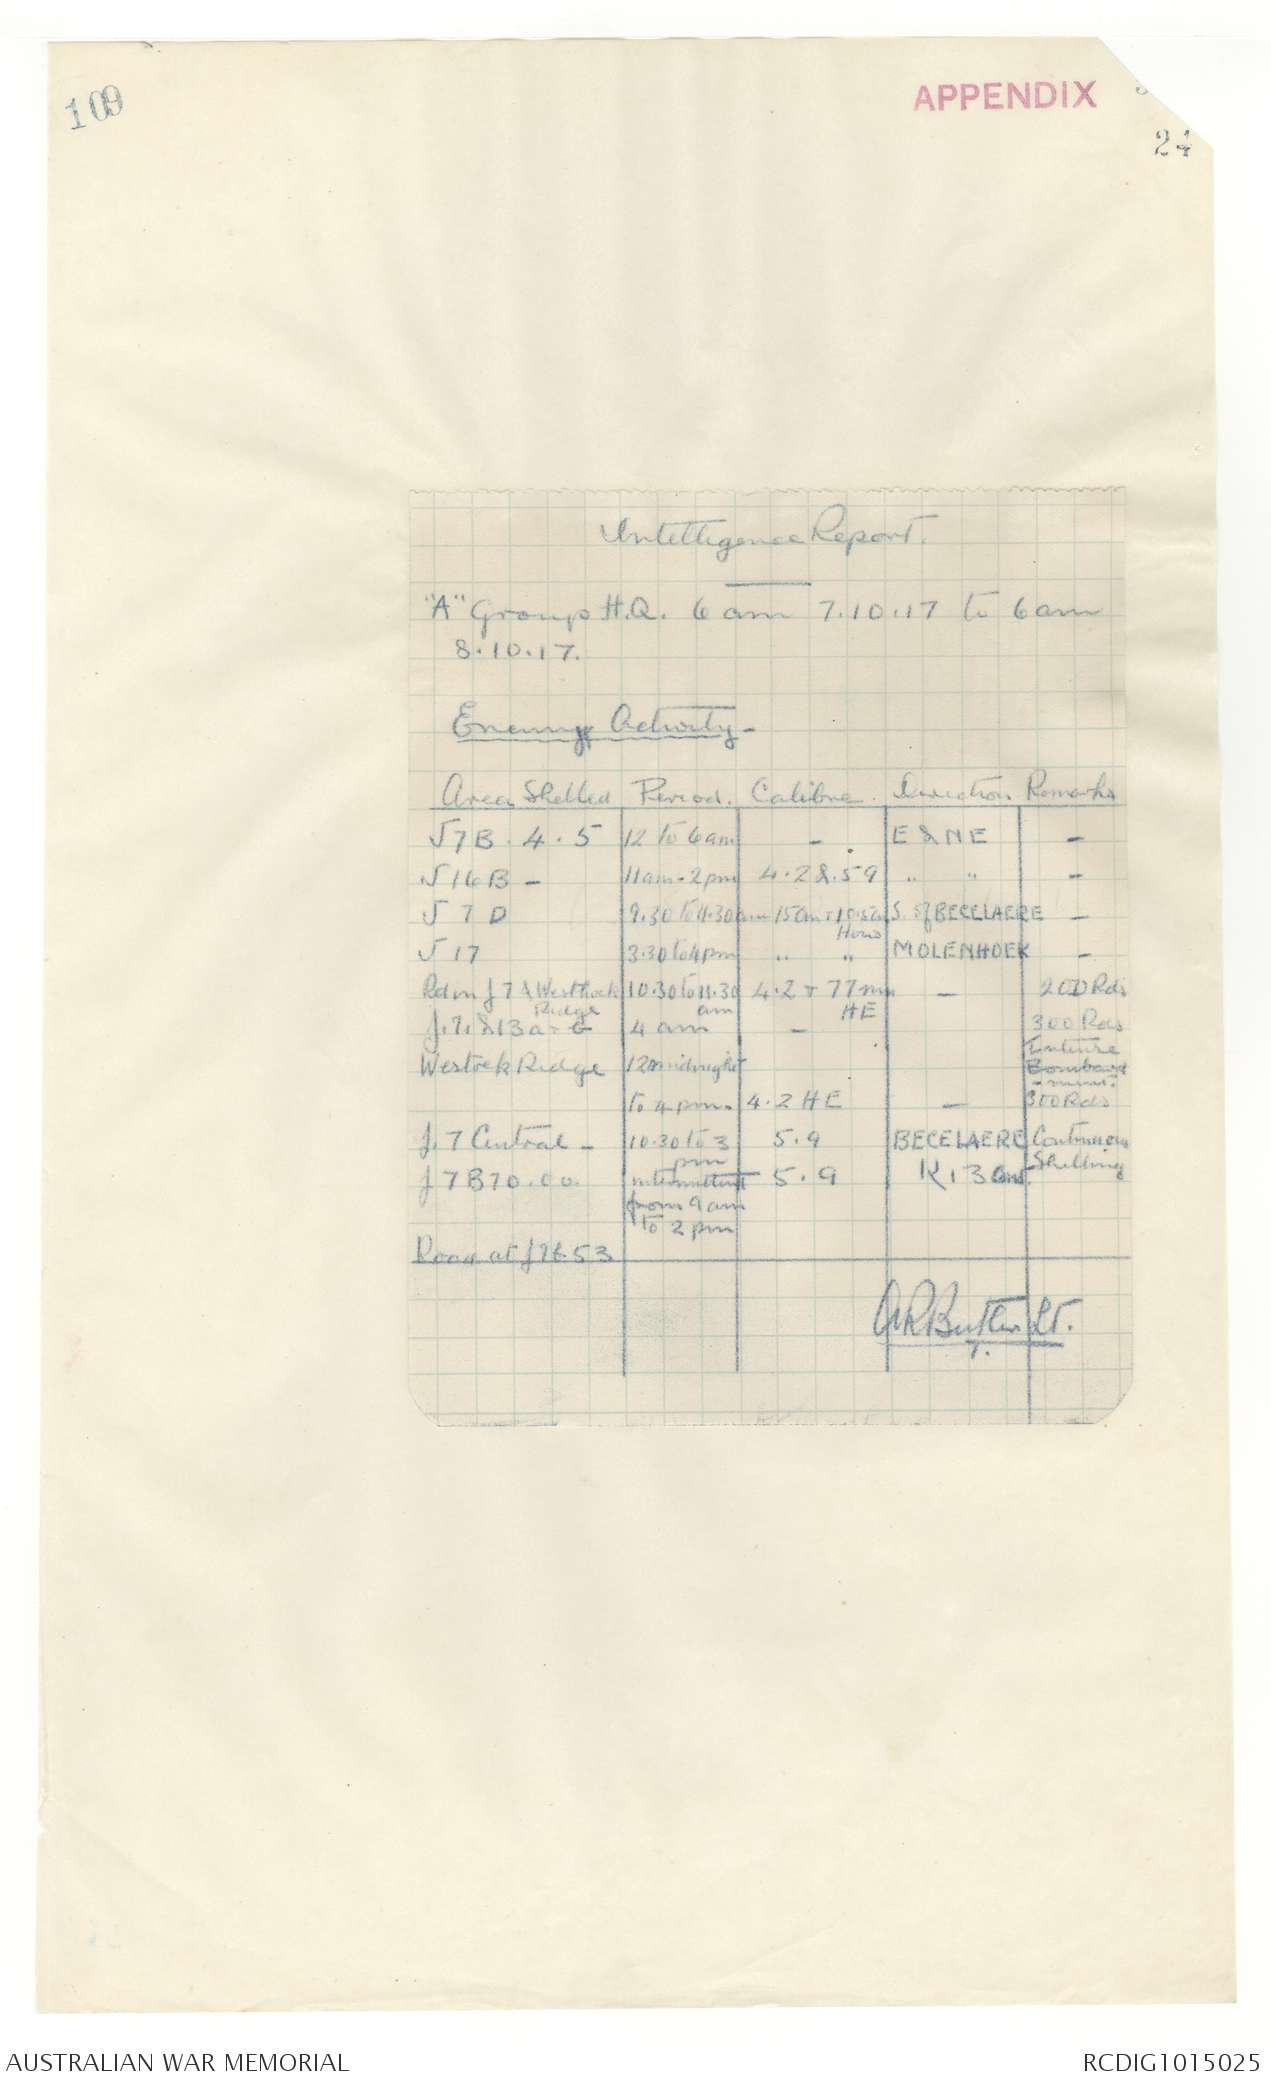 109
APPENDIX
24
Intelligence Report.
"A" Group H.Q. 6 am 7.10.17 to 6 am
8.10.17.
Enemy Activity -
Area Shelled Period. Calibre. Direction Remarks
J7B.4.5 12 to 6am - E & NE -
J16B - 11am-2pm 4.2 & 5.9 " " -
J7D 9.30 to 11.30am 15cm & 10.5cm Hows S. of BECELAERE -
J17 3.30 to 4pm " " MOLENHOEK -
Rd in J7 & Westhoek Ridge 10.30 to 11.30 am 4.2 + 77mm HE - 200 Rds
J.7. & 13 a - c 4 am - 300 Rds
Westoek Ridge 12 midnight Intense Bombard-ment.
to 4 pm. 4.2 HE - 300 Rds
J.7 Central - 10.30 to 3 pm 5.9 BECELAERE Continuous Shelling
J7B70.00. intermittent from 9am to 2 pm 5.9 K13 Cent.
Road at J7b53
A R Butler Lt.
AUSTRALIAN WAR MEMORIAL
RCDIG1015025